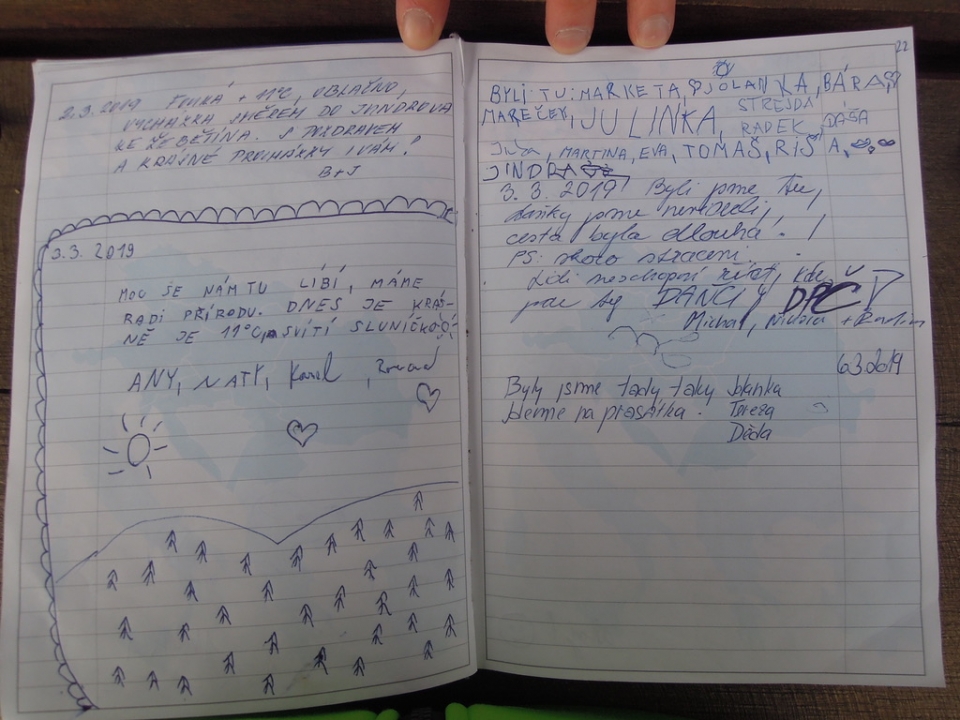 2.3.2019 FOUKÁ + 11°C, OBLAČNO,
VYCHÁZKA SMĚREM DO JUNDROVA
KE ŽEBĚTÍNA. S POZDRAVEM
A KRÁSNÉ PROCHÁZKY I VÁM!
B+J
3.3. 2019
MOC SE NÁM TU LÍBÍ, MÁME
RADI PŘÍRODU. DNES JE KRÁS-
NĚ JE 11°C, SVÍTÍ SLUNÍČKO
ANY, NATY, Karel,
22
BYLI TU: MARKETA, JOLANKA, BÁRA
MAREČEK, JULINKA, STREJDA RADEK, DÁŠA
MARTINA, EVA, TOMAŠ, RIŠA,
JINDRA
3. 3. 2019! Byli jsme tu,
jsme neviděli,
cesta byla dlouhá. !
PS: ztraceni.
Lidi neschopní říct, kde
jsou ty DANČÍ
Michal, + 
6.3.2019
Byly jsme tady taky blanka
Deme na prasátka. Tereza
Děda